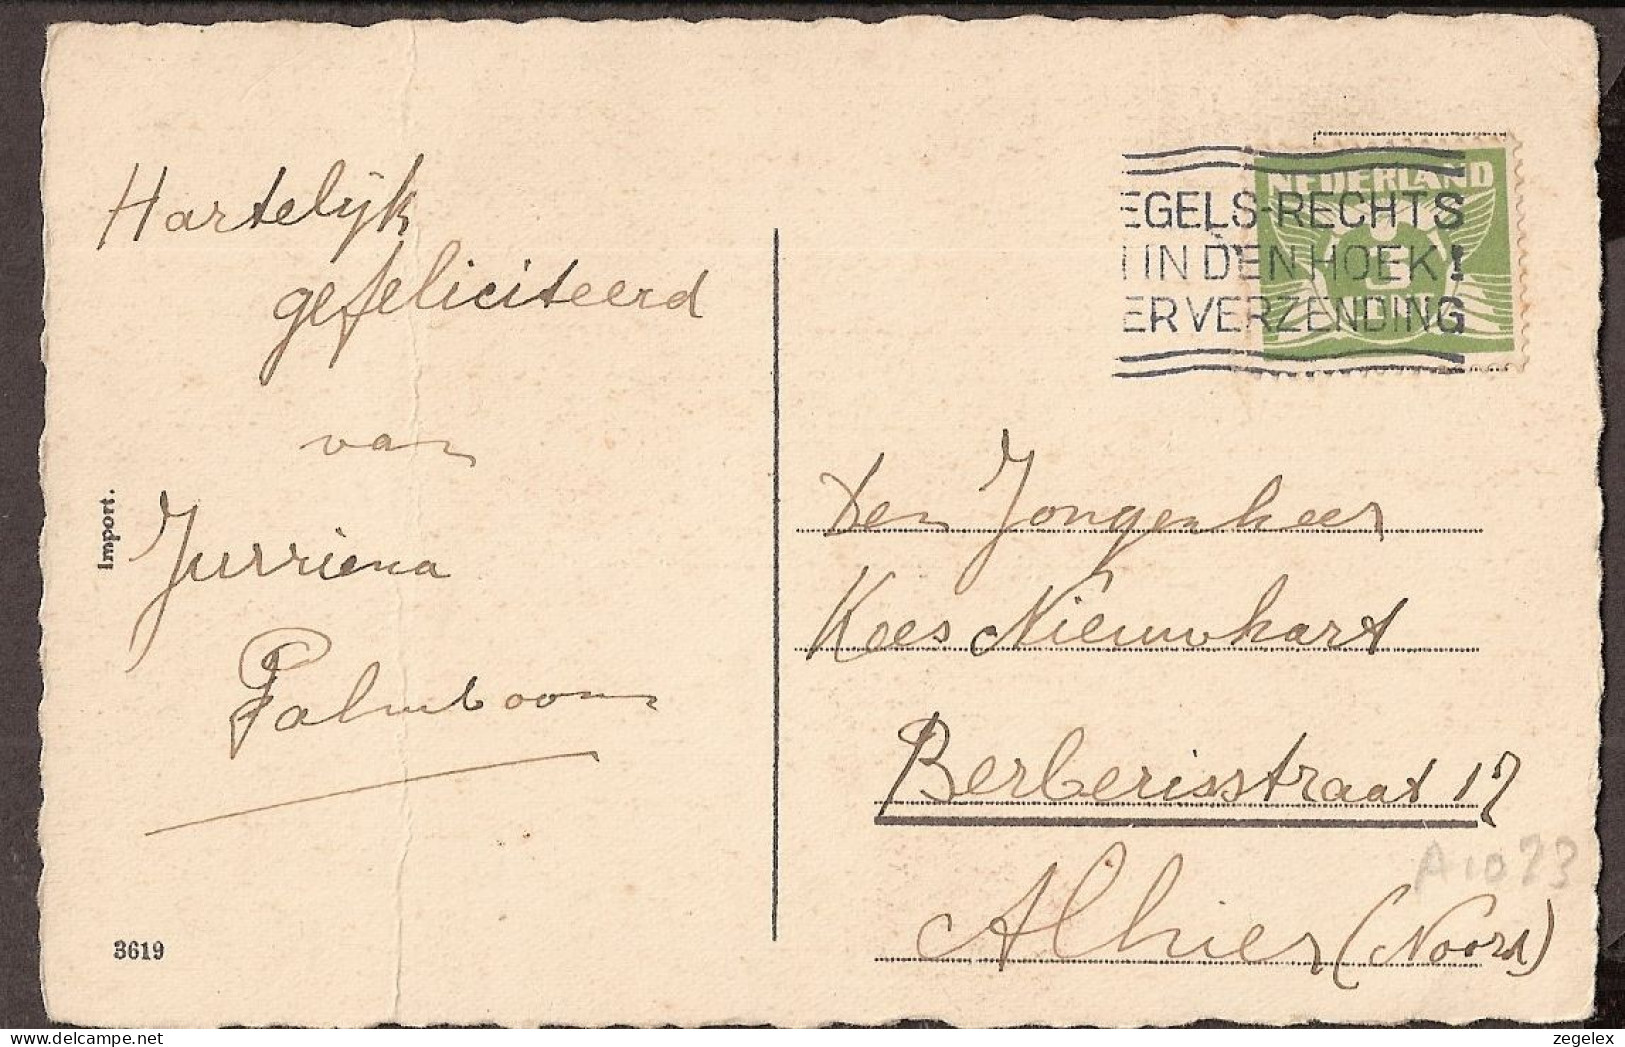 Hartelijk
gefeliciteerd
van
Jurriena
Palmboom
Import.
3619
NEDERLAND
EGELS-RECHTS
IN DEN HOEK!
ER VERZENDING
Den Jongenheer
Kees Nieuwkart
Berberisstraat 17
Alhier (Noord)
A1073
zegelex